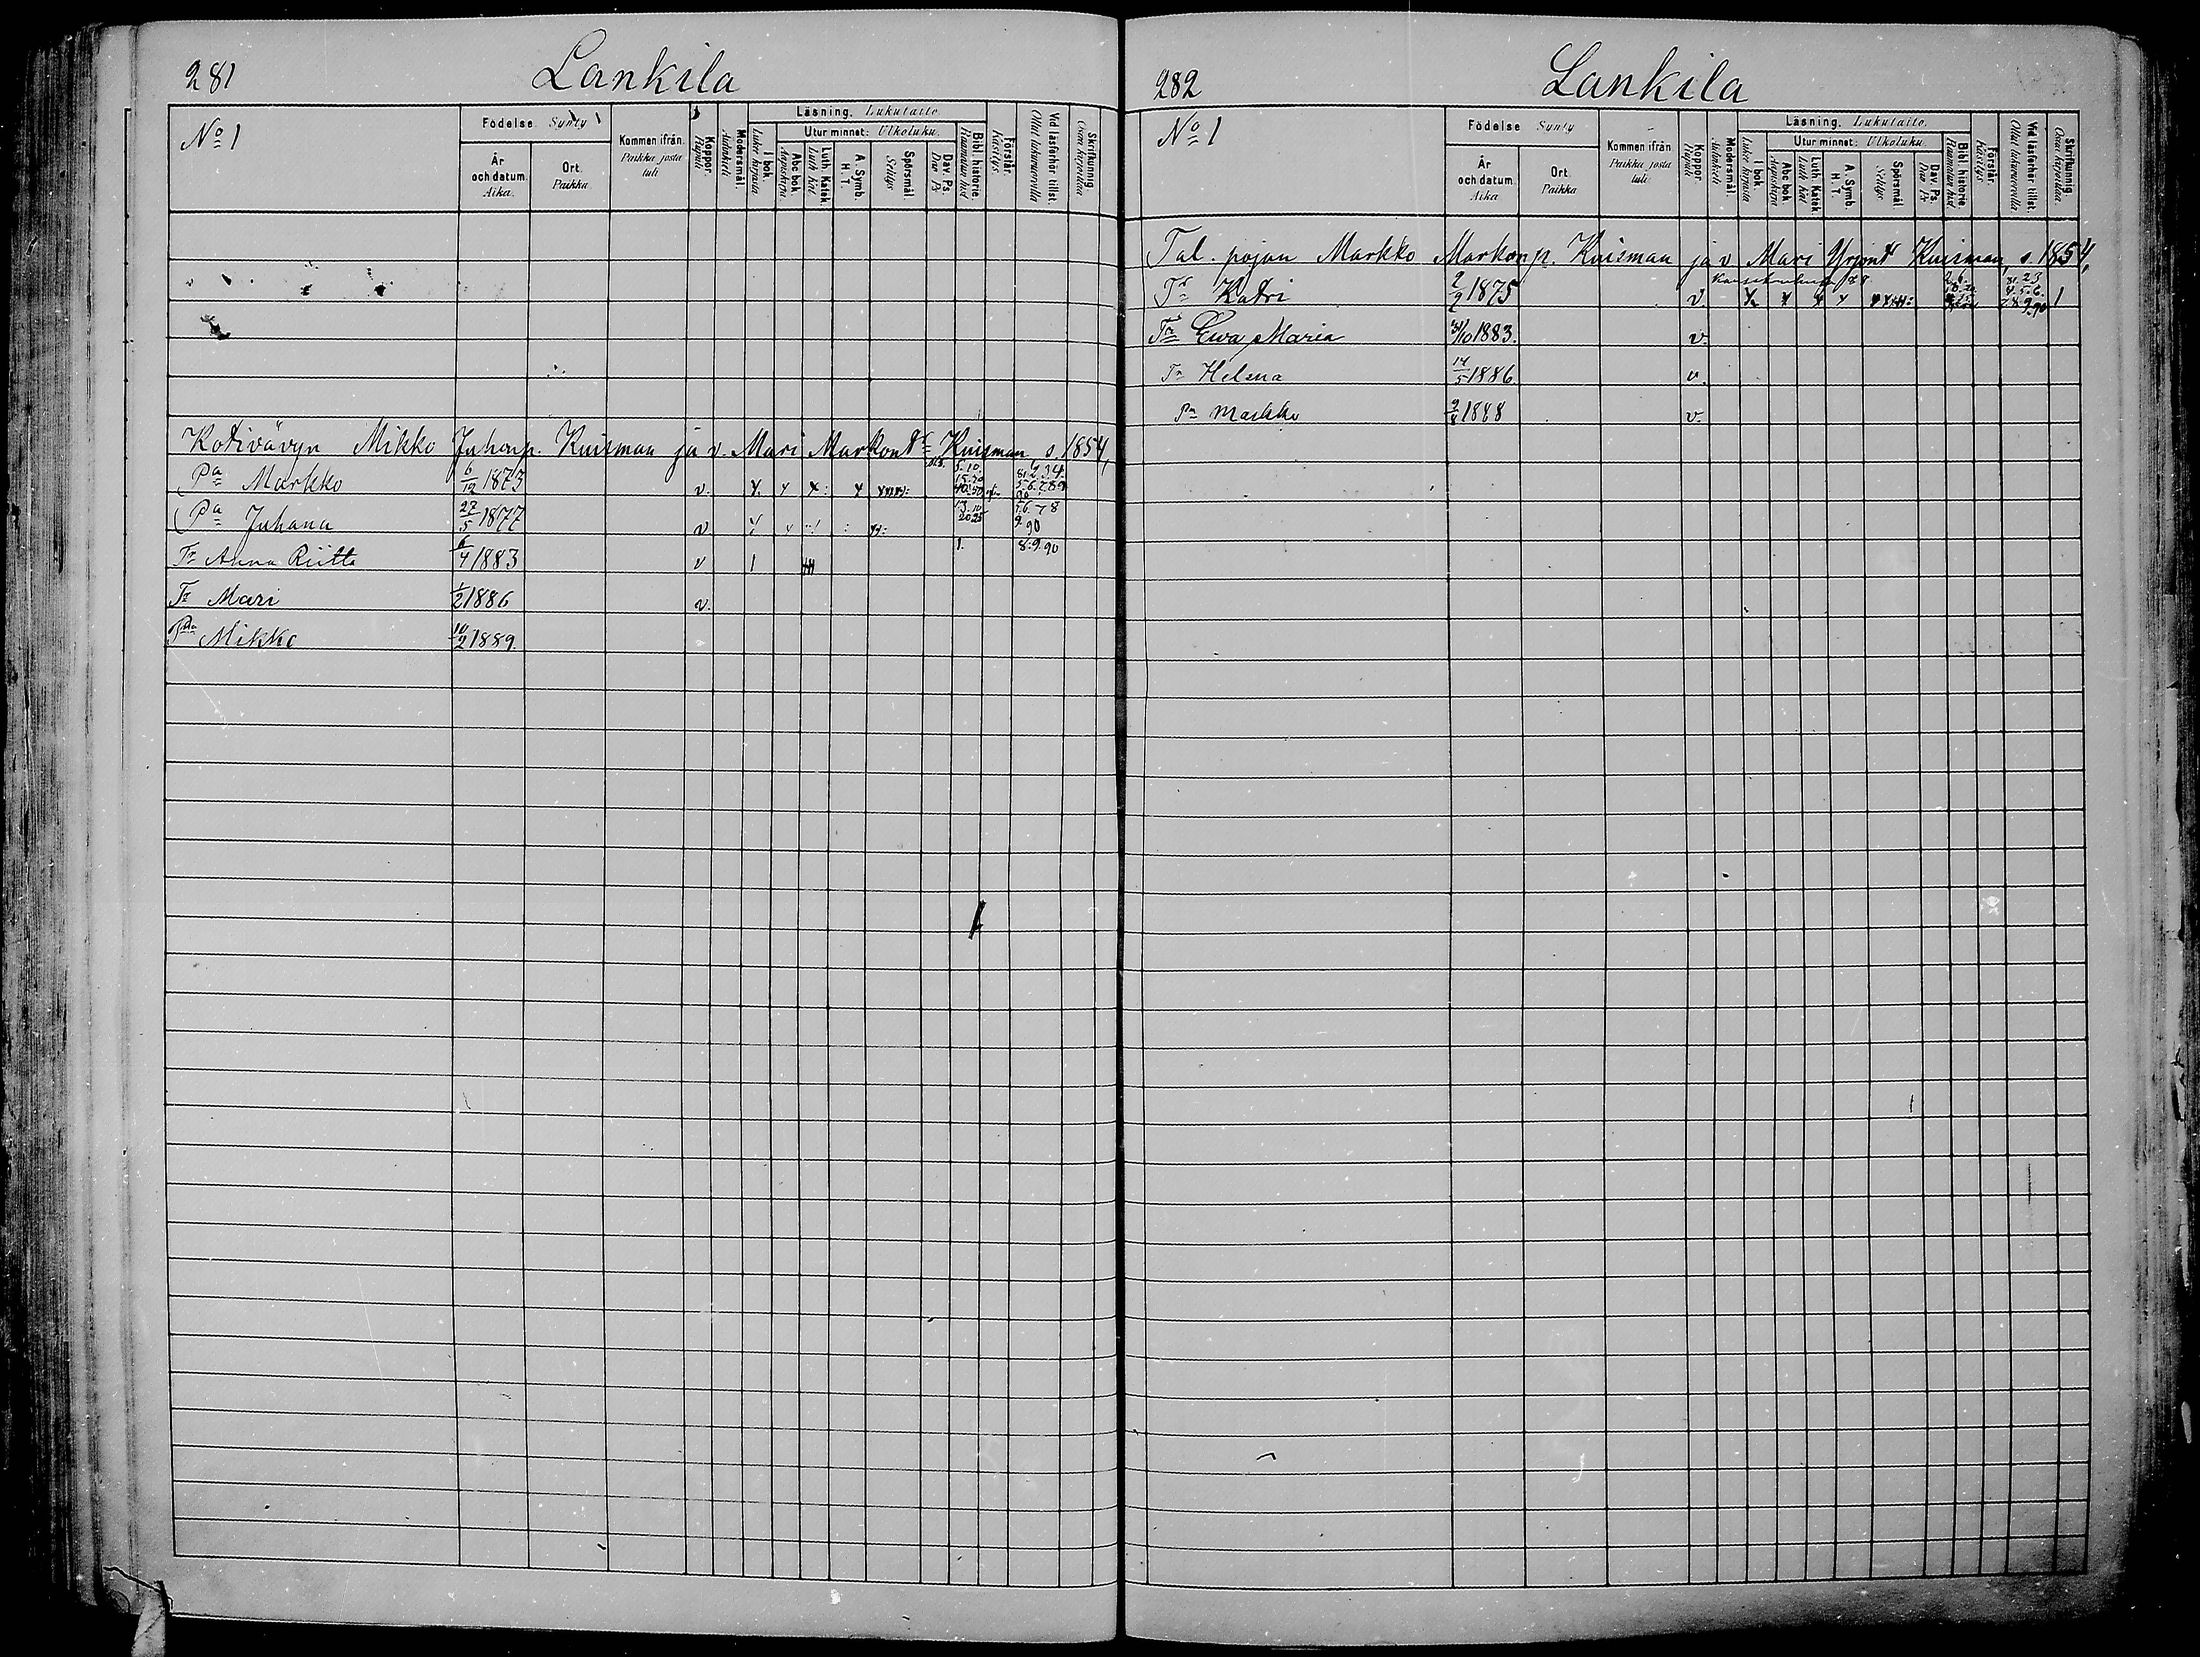 281 Lankila
No 1
Födelse. Synty
Kommen ifrån. Paikka josta tuli
Koppor. Rupuli
Modersmål. Äidinkieli
Läsning. Lukutaito.
Utur minnet: Ulkoluku.
År och datum. Aika.
Ort. Paikka.
I bok. Lukee kirjasta
Abc bok. Aapiskirja
Luth. Katek. Luth. kat.
A. Symb. H. T.
Spörsmål. Selitys
Dav. Ps. Dav. Ps
Bibl. historie. Raamatun hist
Förstår. Käsitys.
Vid läsförhör tillst. Ollut lukuvuorolla
Skrifkunnig. Osaa kirjoittaa.
Kotivävyn Mikko Juhonp. Kuisman ja v. Mari Markont Kuisman s. 1854,
Pa Markko 6/12 1873 v.
Pa Juhana 27/5 1877 v 9. 90
Tr Anna Riitta 6/4 1883 v 1 1. 8.9.90
Tr Mari 1/2 1886 v.
Mikko 10/2 1889.
282 Lankila
No 1
Födelse Synty
Kommen ifrån Paikka josta tuli.
Koppor. Rupuli
Modersmål. Äidinkieli
Läsning. Lukutaito.
Utur minnet: Ulkoluku.
År och datum. Aika
Ort. Paikka
I bok. Lukee kirjasta
Abc bok. Aapiskirja
Luth. Katek. Luth kat
A. Symb. H. T.
Spörsmål. Selitys
Dav. Ps. Dav. Ps
Bibl. historie. Raamatun hist
Förstår. Käsitys
Vid läsförhör tillst. Ollut lukuvuorolla
Skrifkunnig Osaa kirjoittaa.
Tal. pojan Markko Markonp. Kuisman ja v Mari Yrjont Kuisman, s. 1854,
Tr Katri 2/9 1875 v. 1
Tr Ewa Maria 31/10 1883. v.
Tr Helena 14/5 1886 v.
Pa Markko 1888 v.